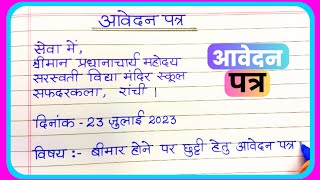 आवेदन पत्र
सेवा में,
श्रीमान प्रधानाचार्य महोदय
सरस्वती विद्या मंदिर स्कूल
सफदरकला, रांची ।
दिनांक - 23 जुलाई 2023
विषय :- बीमार होने पर छुट्टी हेतु आवेदन पत्र
आवेदन
पत्र